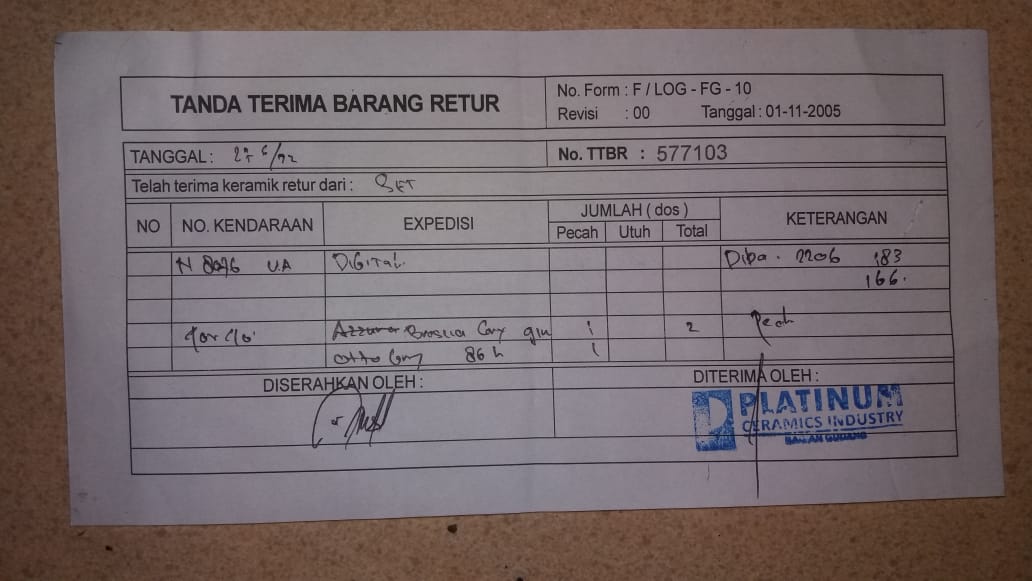 TANDA TERIMA BARANG RETUR
No. Form : F / LOG - FG - 10
Revisi : 00 Tanggal : 01-11-2005
TANGGAL :
No. TTBR : 577103
Telah terima keramik retur dari : SET
NO NO. KENDARAAN EXPEDISI JUMLAH ( dos ) KETERANGAN
Pecah Utuh Total
N UA DIGITAL Diba . 2206 183
166.
40x40 Azzura Brascia Grey 1 2 Pecah
Otto Grey 86 h 1
DISERAHKAN OLEH :
DITERIMA OLEH :
PLATINUM
CERAMICS INDUSTRY
BAGIAN GUDANG